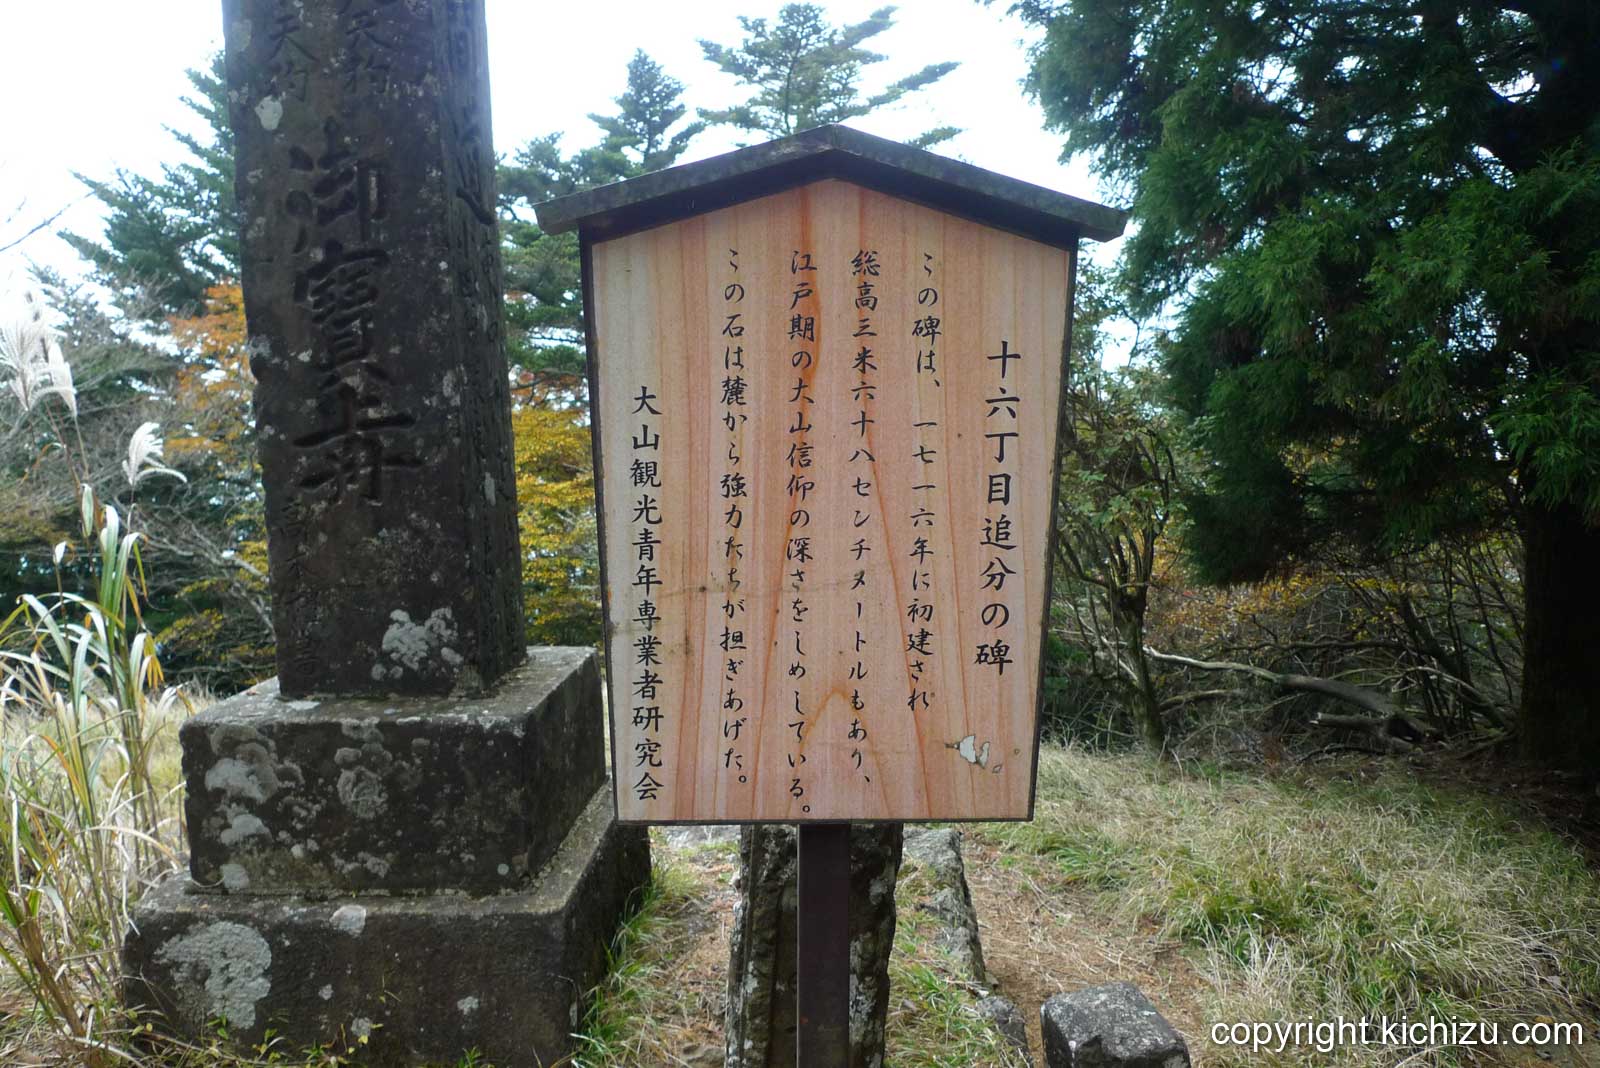 十六丁目追分の碑
この碑は、一七一六年に初建され
総高三米六十八センチメートルもあり、
江戸期の大山信仰の深さをしめしている。
この石は麓から強力たちが担ぎあげた。
大山観光青年専業者研究会
御寶前
copyright kichizu.com